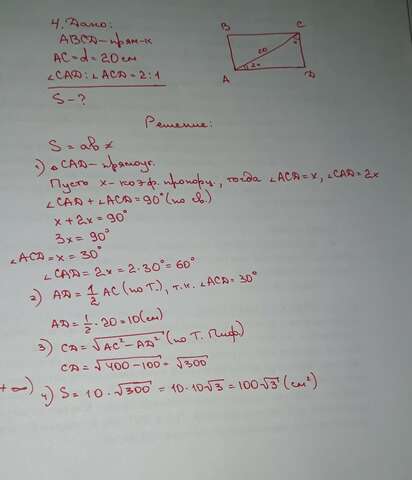 4. Дано:
ABCD – прям-к
AC = d = 20 см
∠CAD : ∠ACD = 2 : 1
S – ?
B C
20
x
2x
A D
Решение:
S = ab
1) △CAD – прямоуг.
Пусть x – коэф. пропорц., тогда ∠ACD = x, ∠CAD = 2x
∠CAD + ∠ACD = 90° (по св.)
x + 2x = 90°
3x = 90°
∠ACD = x = 30°
∠CAD = 2x = 2·30° = 60°
2) AD = 1/2 AC (по Т.), т.к. ∠ACD = 30°
AD = 1/2 · 20 = 10 (см)
3) CD = √(AC² – AD²) (по Т. Пиф)
CD = √(400 – 100) = √300
+∞)
4) S = 10 · √300 = 10 · 10√3 = 100√3 (см²)